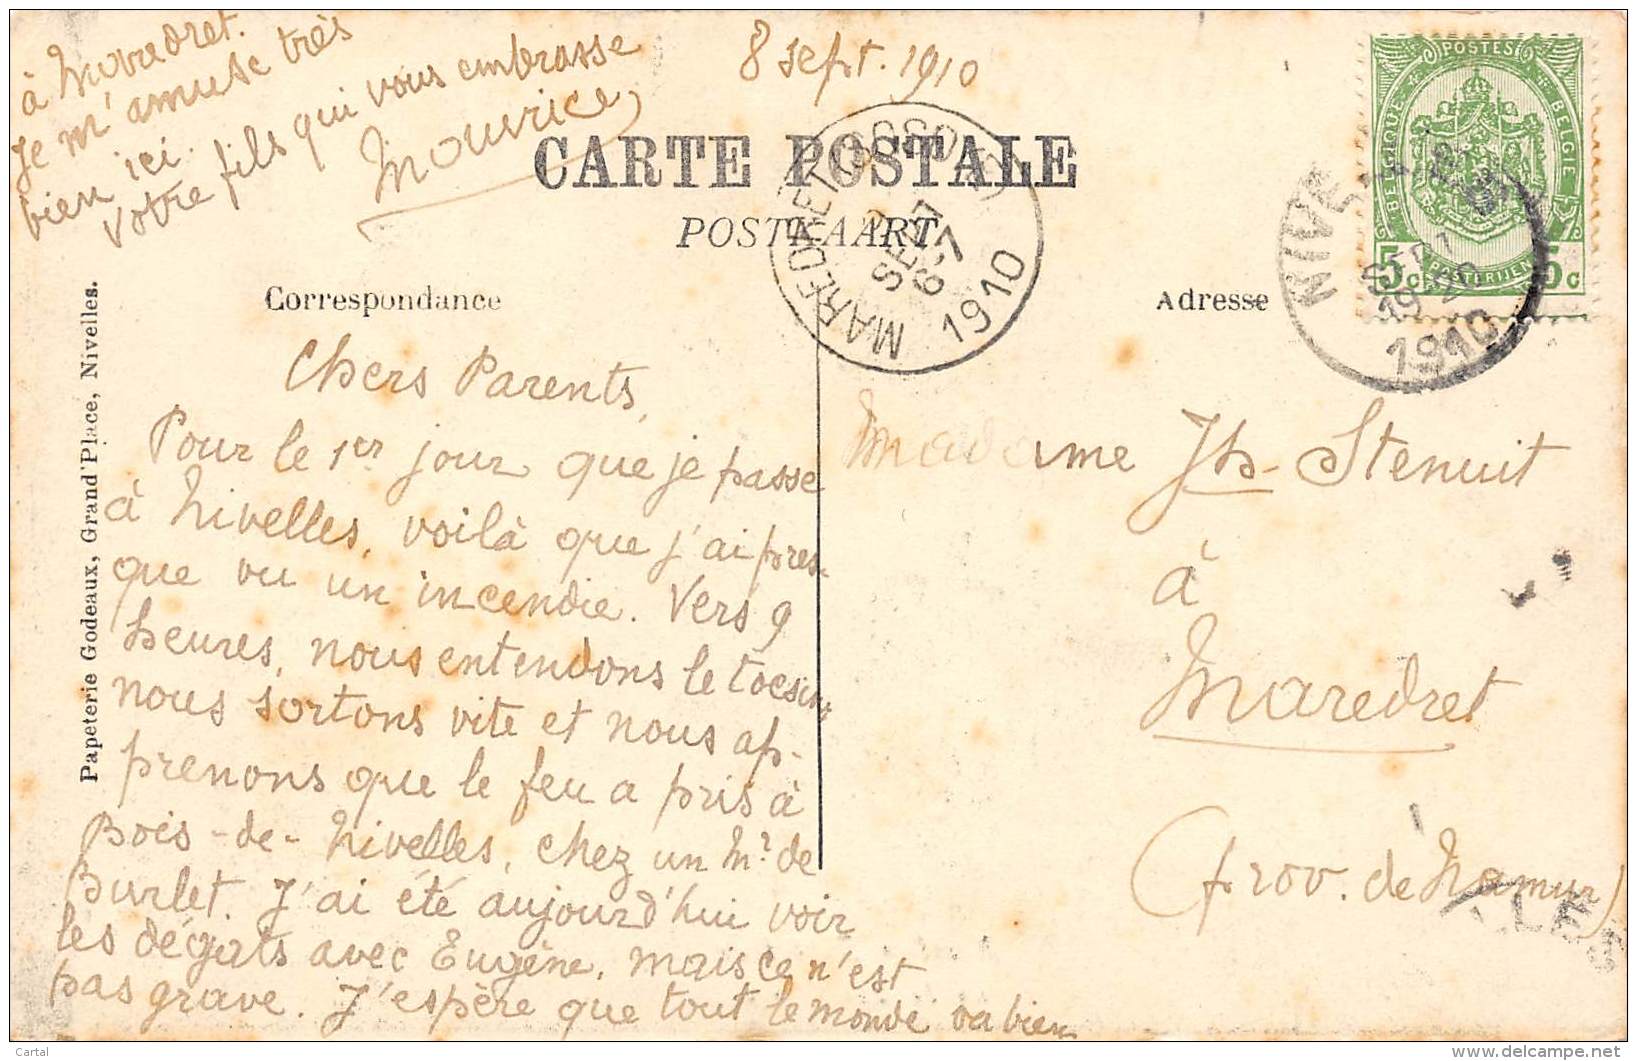 8 sept. 1910
CARTE POSTALE
POSTKAART
Correspondance
Adresse
Chers Parents,
Pour le 1er jour que je passe
à Nivelles, voilà que j'ai pres-
que vu un incendie. Vers 9
heures, nous entendons le tocsin,
nous sortons vite et nous ap-
prenons que le feu a pris à
Bois-de-Nivelles, chez un Mr de
Burlet. J'ai été aujourd'hui voir
les dégats avec Eugène, mais ce n'est
pas grave. J'espère que tout le monde va bien
à Maredret.
Je m'amuse très
bien ici.
Votre fils qui vous embrasse
Maurice,
Madame Jh Stenuit
à
Maredret
(prov. de Namur)
Papeterie Godeaux, Grand'Place, Nivelles.
POSTES
BELGIQUE
BELGIE
POSTERIJEN
5c 5c
MAREDRET
SEPT
6-7
1910
NIVE
19-20
1910
LLES
Cartal
www.delcampe.net